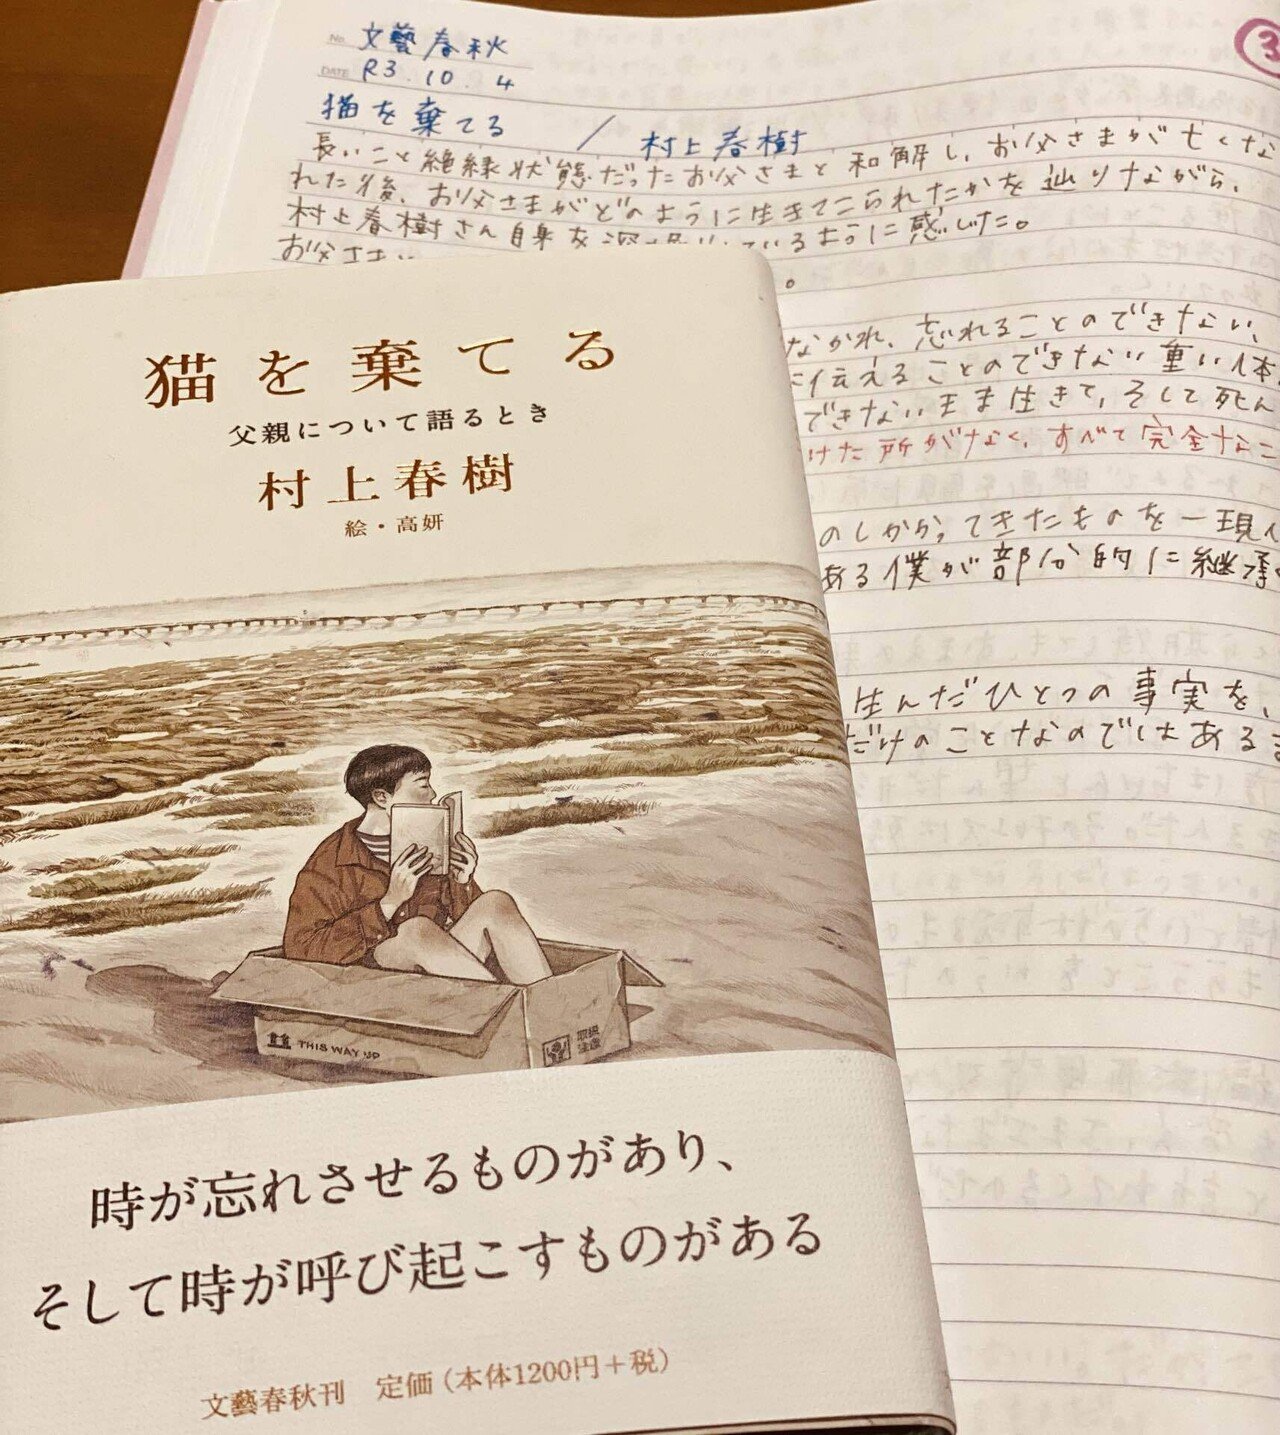 No. 文藝春秋
DATE R3.10.4
猫を棄てる / 村上春樹
長いこと絶縁状態だったお父さまと和解し、お父さまが亡くな
れた後、お父さまがどのように生きてこられたかを辿りながら、
村上春樹さん自身を ているように感じした。
お父さま
なかれ、忘れることのできない、
に伝えることのできない重い体
できないまま生きて、そして死ん
けた所がなく、すべて完全なこ
のしかかってきたものを一現代
ある僕が部分的に継承
生んだひとつの事実を、
だけのことなのではあるま
3
猫を棄てる
父親について語るとき
村上春樹
絵・高妍
THIS WAY UP
取扱
注意
時が忘れさせるものがあり、
そして時が呼び起こすものがある
文藝春秋刊 定価(本体1200円+税)